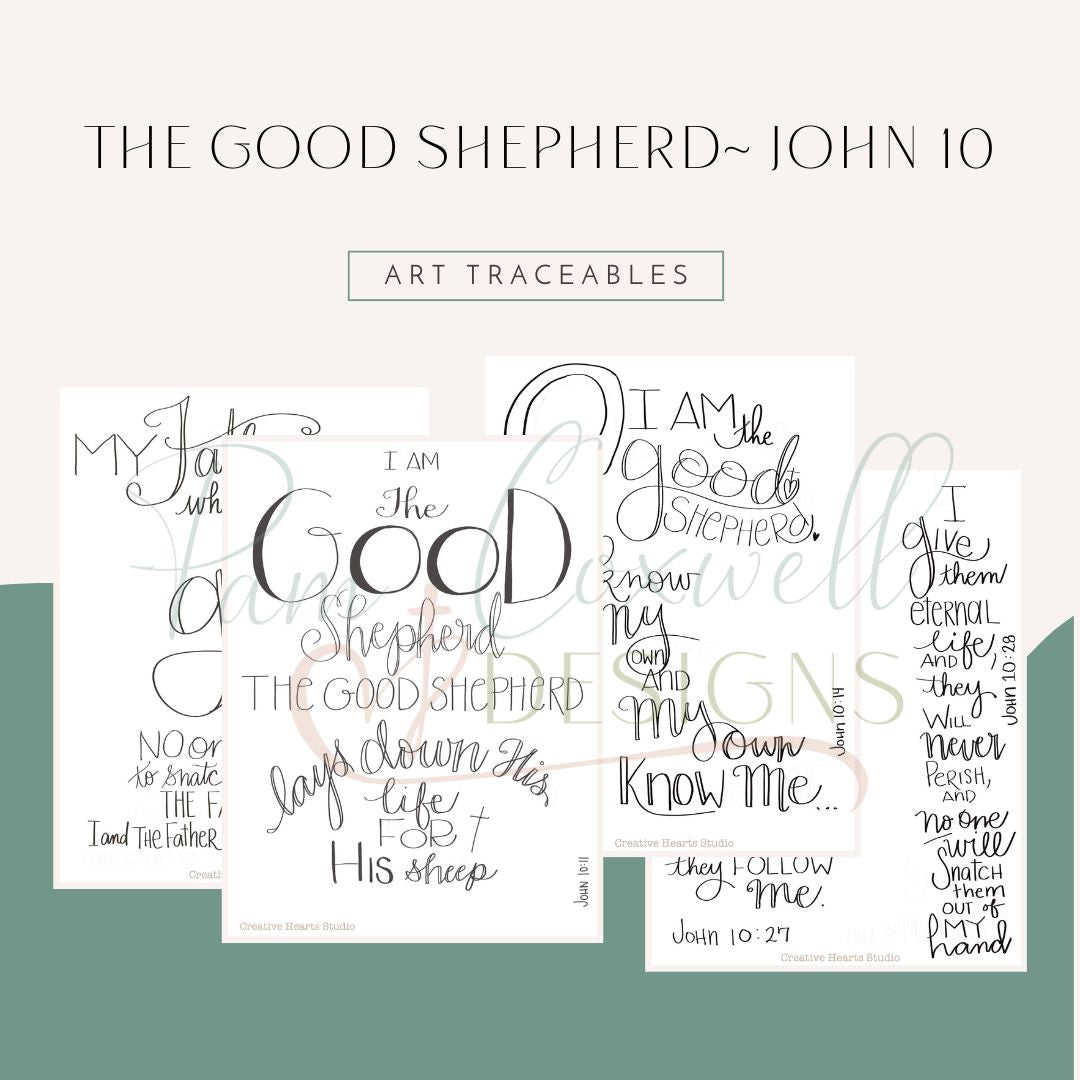 THE GOOD SHEPHERD~ JOHN 10
ART TRACEABLES
MY
wh
NO
to snatc
THE FA
I and THE Father
Creati
I AM
The
GOOD
Shepherd
THE GOOD SHEPHERD
lays down His
life
FOR
His sheep
JOHN 10:11
Creative Hearts Studio
I AM
the
good
SHEPHERD.
know
my
own
AND
my own
Know Me...
John 10:14
Creative Hearts Studio
they FOLLOW
Me.
John 10:27
I
give
them
eternal
life,
AND
they
WILL
never
PERISH,
AND
no one
will
SNATCH
them
OUT of
MY
hand
John 10:28
Creative Hearts Studio
Pam Coxwell
DESIGNS